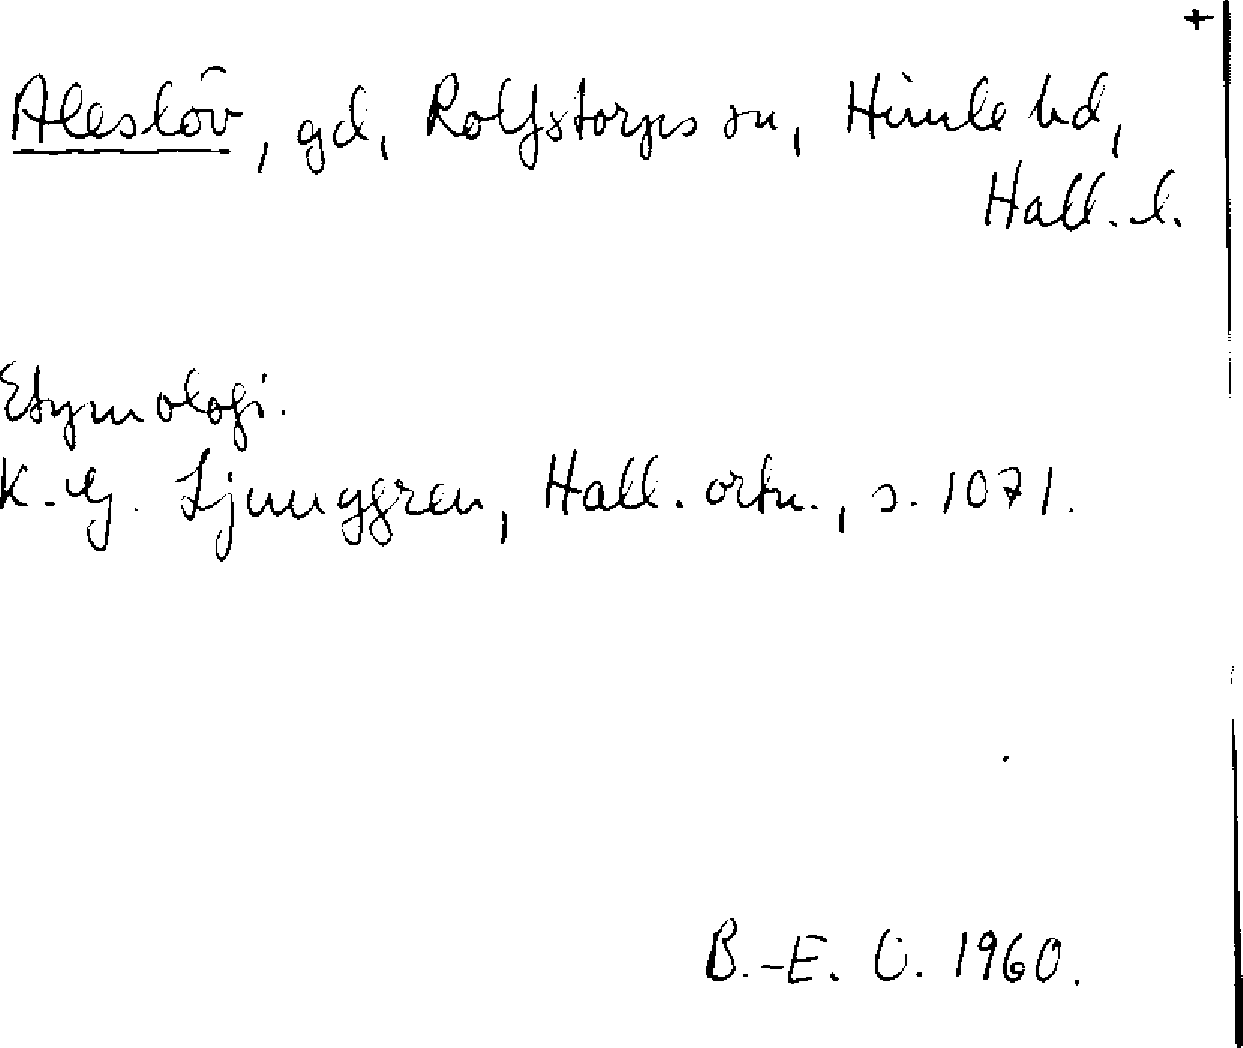 +
Aleslöv, gd, Rolfstorps sn, Himle hd,
Hall. l.
Etymologi.
K.-G. Ljunggren, Hall. ortn., s. 1071.
B.-E. O. 1960.